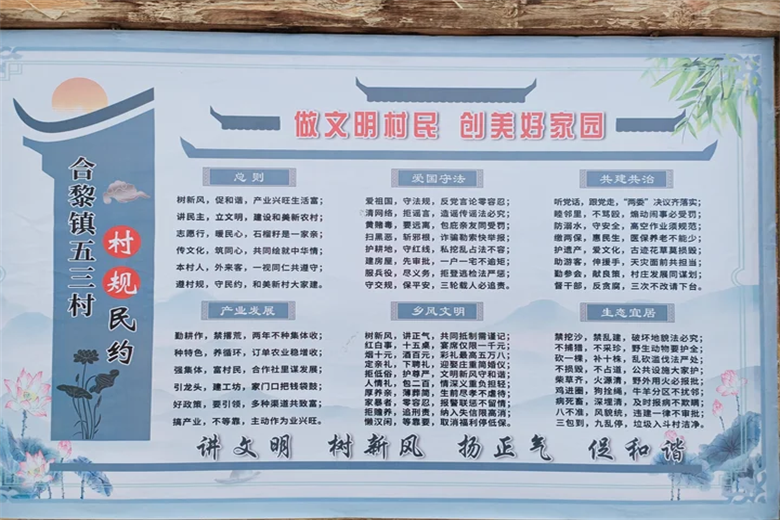 合黎镇五三村
村规民约
做文明村民 创美好家园
总则
树新风，促和谐，产业兴旺生活富；
讲民主，立文明，建设和美新农村；
志愿行，暖民心，石榴籽是一家亲；
传文化，筑同心，共同绘就中华情；
本村人，外来客，一视同仁共遵守；
遵村规，守民约，和美新村大家建。
爱国守法
爱祖国，守法规，反党言论零容忍；
清网络，拒谣言，造谣传谣法必究；
黄赌毒，要远离，包庇亲友同受罚；
扫黑恶，斩邪根，诈骗勒索快举报；
护耕地，守红线，私挖乱占法不容；
建房屋，先审批，一户一宅不逾矩；
服兵役，尽义务，拒登逃检法严惩；
守交规，保平安，三轮载人必追责。
共建共治
听党话，跟党走，“两委”决议齐落实；
睦邻里，不骂殴，煽动闹事必受罚；
防溺水，守安全，高空作业须规范；
缴两保，惠民生，医保养老不能少；
护遗产，爱文化，古迹花草莫损毁；
助游客，伸援手，天灾面前共担当；
勤参会，献良策，村庄发展同谋划；
督干部，反贪腐，三次不改请下台。
产业发展
勤耕作，禁撂荒，两年不种集体收；
种特色，养循环，订单农业稳增收；
强集体，富村民，合作社里谋发展；
引龙头，建工坊，家门口把钱袋鼓；
好政策，要引领，多种渠道共致富；
搞产业，不等靠，主动作为业兴旺。
乡风文明
树新风，讲正气，共同抵制需谨记；
红白事，十五桌，宴席仅限一千元；
烟十元，酒百元，彩礼最高五万八；
定亲礼，下聘礼，迎娶庄重简婚仪；
拒低俗，护尊严，文明新风守和谐；
人情礼，包二百，情深义重负担轻；
厚养亲，薄葬简，生前尽孝不虐待；
家暴者，零容忍，报警联惩不留情；
拒赡养，追刑责，纳入失信限高消；
懒汉闲，等靠要，取消福利停低保。
生态宜居
禁挖沙，禁乱建，破坏地貌法必究；
不捕猎，不采珍，野生动物要护全；
砍一棵，补十株，乱砍滥伐法严处；
不损毁，不占道，公共设施大家护；
柴草齐，火源清，野外用火必报批；
鸡进圈，狗拴绳，牛羊分区不扰邻；
病死畜，深埋清，及时报病不欺瞒；
八不准，风貌统，违建一律不审批；
三包到，九乱停，垃圾入斗村洁净。
讲文明 树新风 扬正气 促和谐